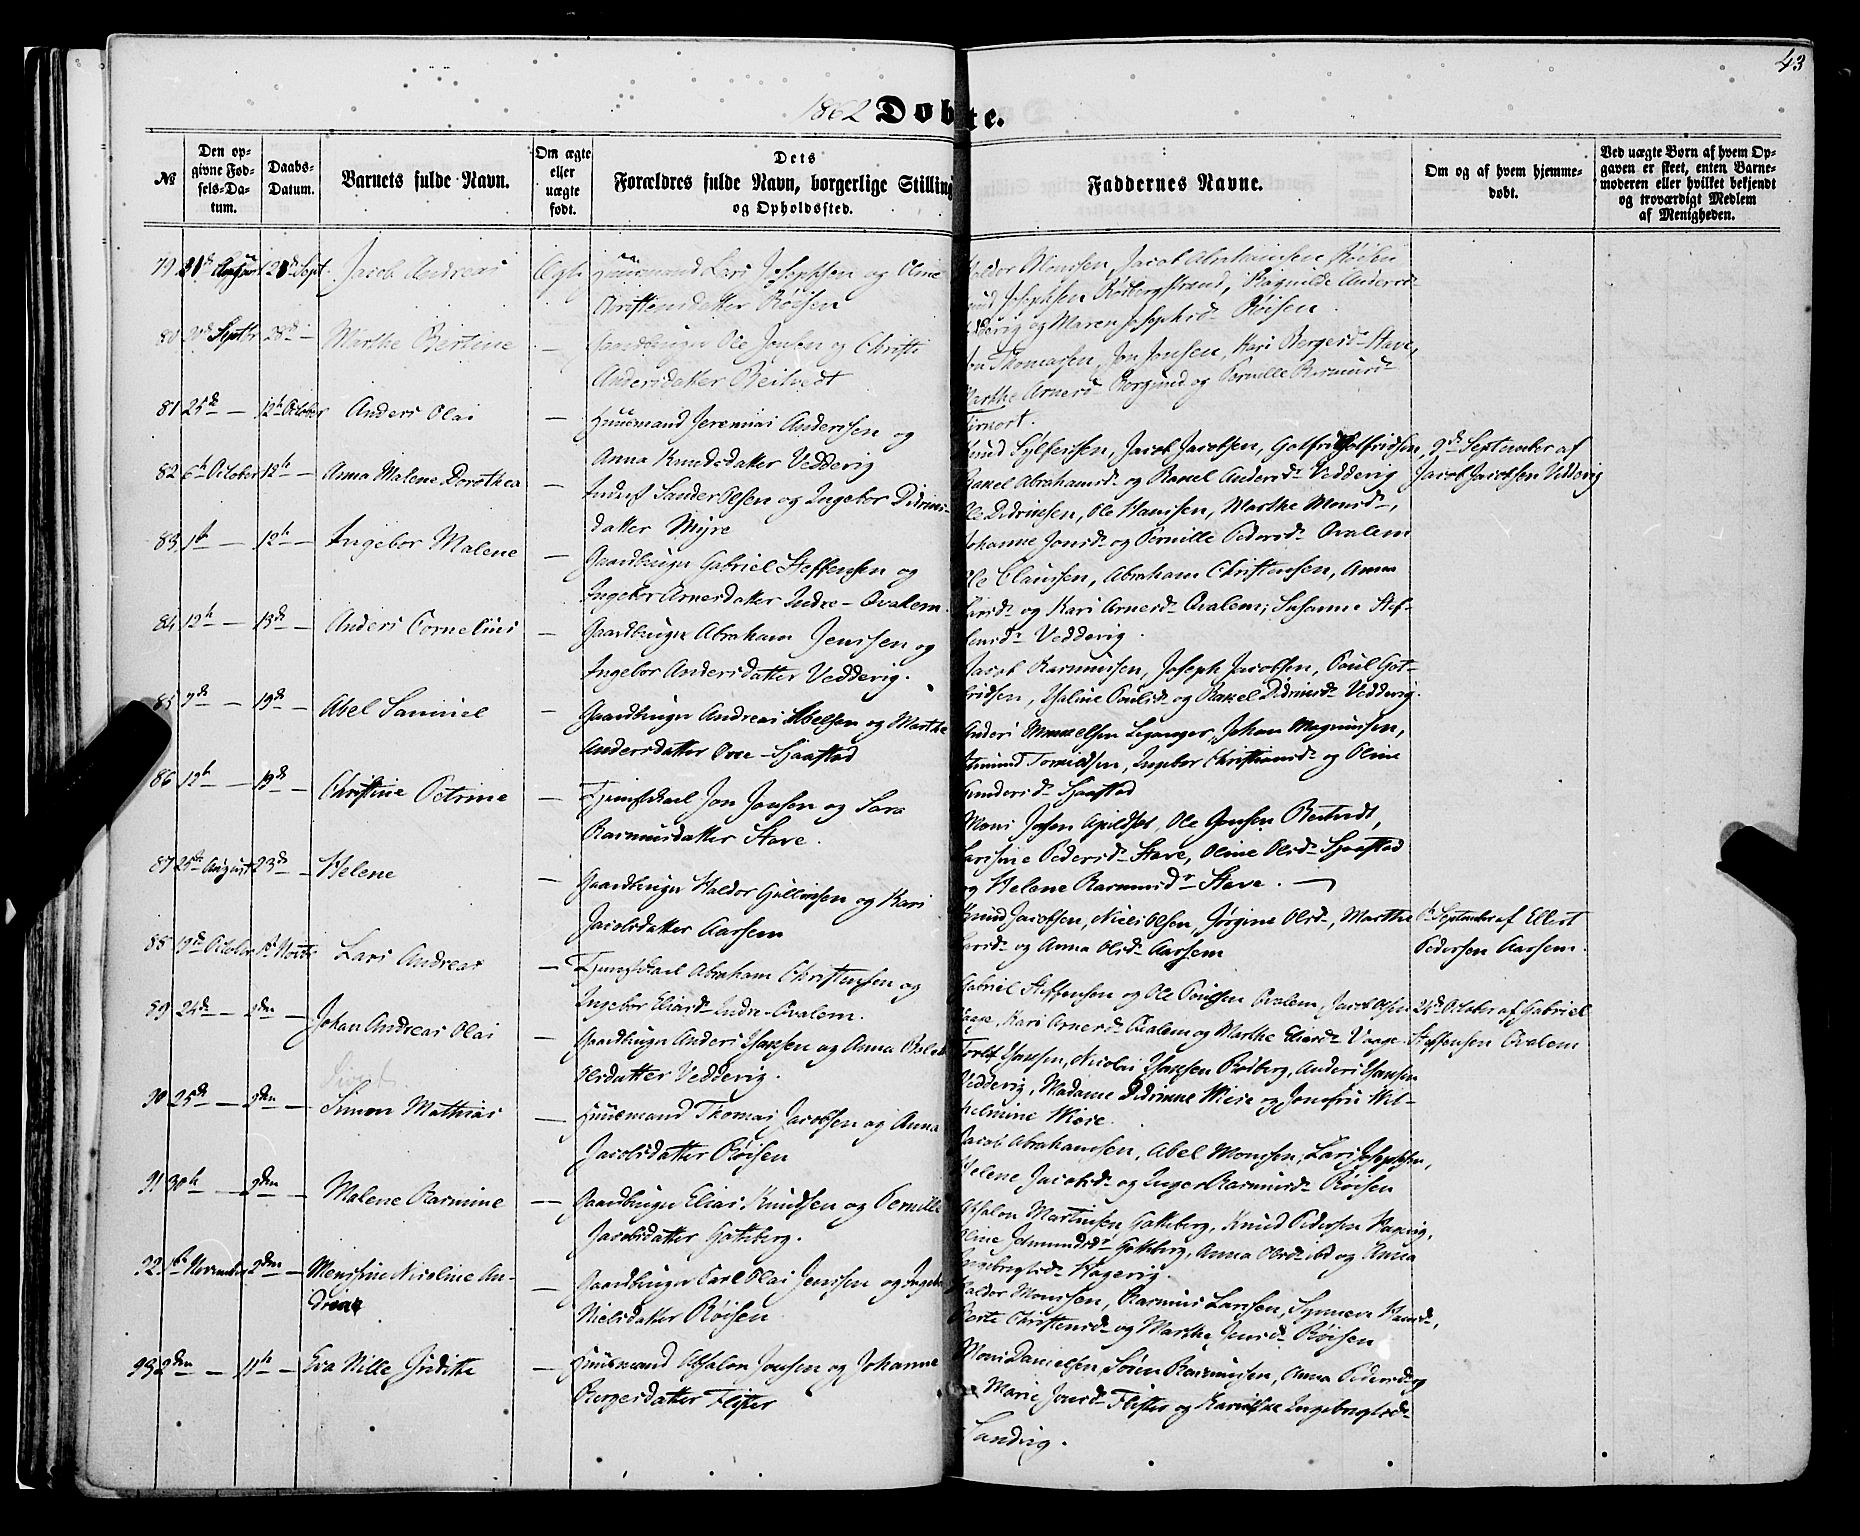 43
1862 Døbte.
№
Den opgivne Fødsels-Datum.
Daabs-Datum.
Barnets fulde Navn.
Om ægte eller uægte født.
Dets Forældres fulde Navn, borgerlige Stilling og Opholdssted.
Faddernes Navne.
Om og af hvem hjemmedøbt.
Ved uægte Børn af hvem Opgaven er skeet, enten Barnemoderen eller hvilket bekjendt og troværdigt Medlem af Menigheden.
79 Jacob Andreas Ægte Huusmand Lars Josephsen og Oline
Christensdatter Røisen
Haldor Monsen, Jacob Abrahamsen Røisen
Josephsen Rødbergstrand, Ragnilde Andersd-
Vedderig og Maren Josephsd- Røisen
80 28de — Marthe Bertine — Gaardbruger Ole Jonsen og Christi
Andersdatter Beitvedt
Thomassen, Jon Jonsen, Kari Bergesd- Stave,
Marthe Arnesd- Borgund og Pernille Rasmusd-
81 25de — 12th October Anders Olai — Huusmand Jeremias Andersen og
Anna Knudsdatter Vedderig
Knud Sylfestsen, Jacob Jacobsen, Gotfrid Gotfridsen,
Rakel Abrahamsd- og Rakel Andersd- Vedderig
2de September af
Jacob Jacobsen Vedderig
82 6th October 12th — Anna Malene Dorothea — Inderst Sander Olsen og Ingebor Didriks-
datter Myre
Ole Didriksen, Ole Hansen, Marthe Monsd-,
Johanne Jonsd- og Pernille Pedersd- Qvalem
83 1th — 12th — Ingebor Malene — Gaardbruger Gabriel Steffensen og
Ingebor Arnesdatter Indre-Qvalem
Ole Claussen, Abraham Christensen, Anna
Larsd- og Kari Arnesd- Qvalem; Susanne Stef-
fensd- Vedderig.
84 12th — 19de — Anders Cornelius — Gaardbruger Abraham Jensen og
Ingebor Andersdatter Vedderig.
Jacob Rasmussen, Joseph Jacobsen, Poul Got-
fridsen, Paulsd- og Rakel Didriksd- Vedderig.
85 7de — 19de — Abel Samuel — Gaardbruger Andreas Abelsen og Marthe
Andersdatter Øvre-Sjaastad
Anders Mikkelsen Leganger, Johan Magnussen,
Ingebor Christiansd- og Oline
Gundersd- Sjaastad
86 12th — 19de — Christine Petrine — Tjenestkarl Jon Jonsen og Sara
Rasmusdatter Stave.
Mons Apildset, Ole Jonsen Beitvedt,
Pedersd- Stave, Oline Olsd- Sjaastad
og Helene Rasmusd- Stave. —
87 25th August 23de — Helene — Gaardbruger Haldor Gullaksen og Kari
Jacobsdatter Aarsem
Knud Jacobsen, Niels Olsen, Jørgine Olsd-, Marthe
Larsd- og Anna Olsd- Aarsem
September af Ellert
Pedersen Aarsem.
88 19de October Lars Andreas — Tjenestkarl Abraham Christensen og
Ingebor Eliasd- Indre-Qvalem.
Gabriel Steffensen og Ole Poulsen Qvalem, Jacob Olsen
Vaage, Kari Arnesd- Qvalem og Marthe Eliasd- Vaage
24de October af Gabriel
Steffensen Qvalem
89 24de — 2den — Johan Andreas Olai — Gaardbruger Anders Isaksen og Anna
Olsdatter Vedderig.
Isaksen, Nicolai Isaksen Rødberg, Anders Isaksen
Vedderig, Madame Didrikke Wiese og Josefine Wil-
helmine Wiese.
90 25de — 2den — Simon Mathias — Huusmand Thomas Jacobsen og Anna
Jacobsdatter Røisen
Jacob Abrahamsen, Abel Monsen, Lars Josephsen,
Helene Jacobsd- og Inger Rasmusd- Røisen
91 30th — 2den — Malene Rasmine — Gaardbruger Elias Knudsen og Pernille
Jacobsdatter Gatteberg.
Absalon Martinsen Gatteberg, Knud Pedersen Hagevig,
Oline Jetmundsd- Gatteberg, Anna Olsd- ibd og Anna
Ingebrigtsd- Hagevig.
92 November 2den — Monsine Nicoline An-
drine
— Gaardbruger Carl Olai Jensen og Ingebor
Nielsdatter Røisen
Haldor Monssen, Rasmus Larssen, Synneva Hansd-,
Berte Christensd- og Marthe Jensd- Røisen
93 2den — 11th — Eva Nille Joditte — Huusmand Absalon Jonsen og Johanne
Bergesdatter Flister
Mons Danielsen, Søren Rasmussen, Anna Pedersd- og
Marie Jonsd- Flister og Ingebrigtsd-
Sandvig.